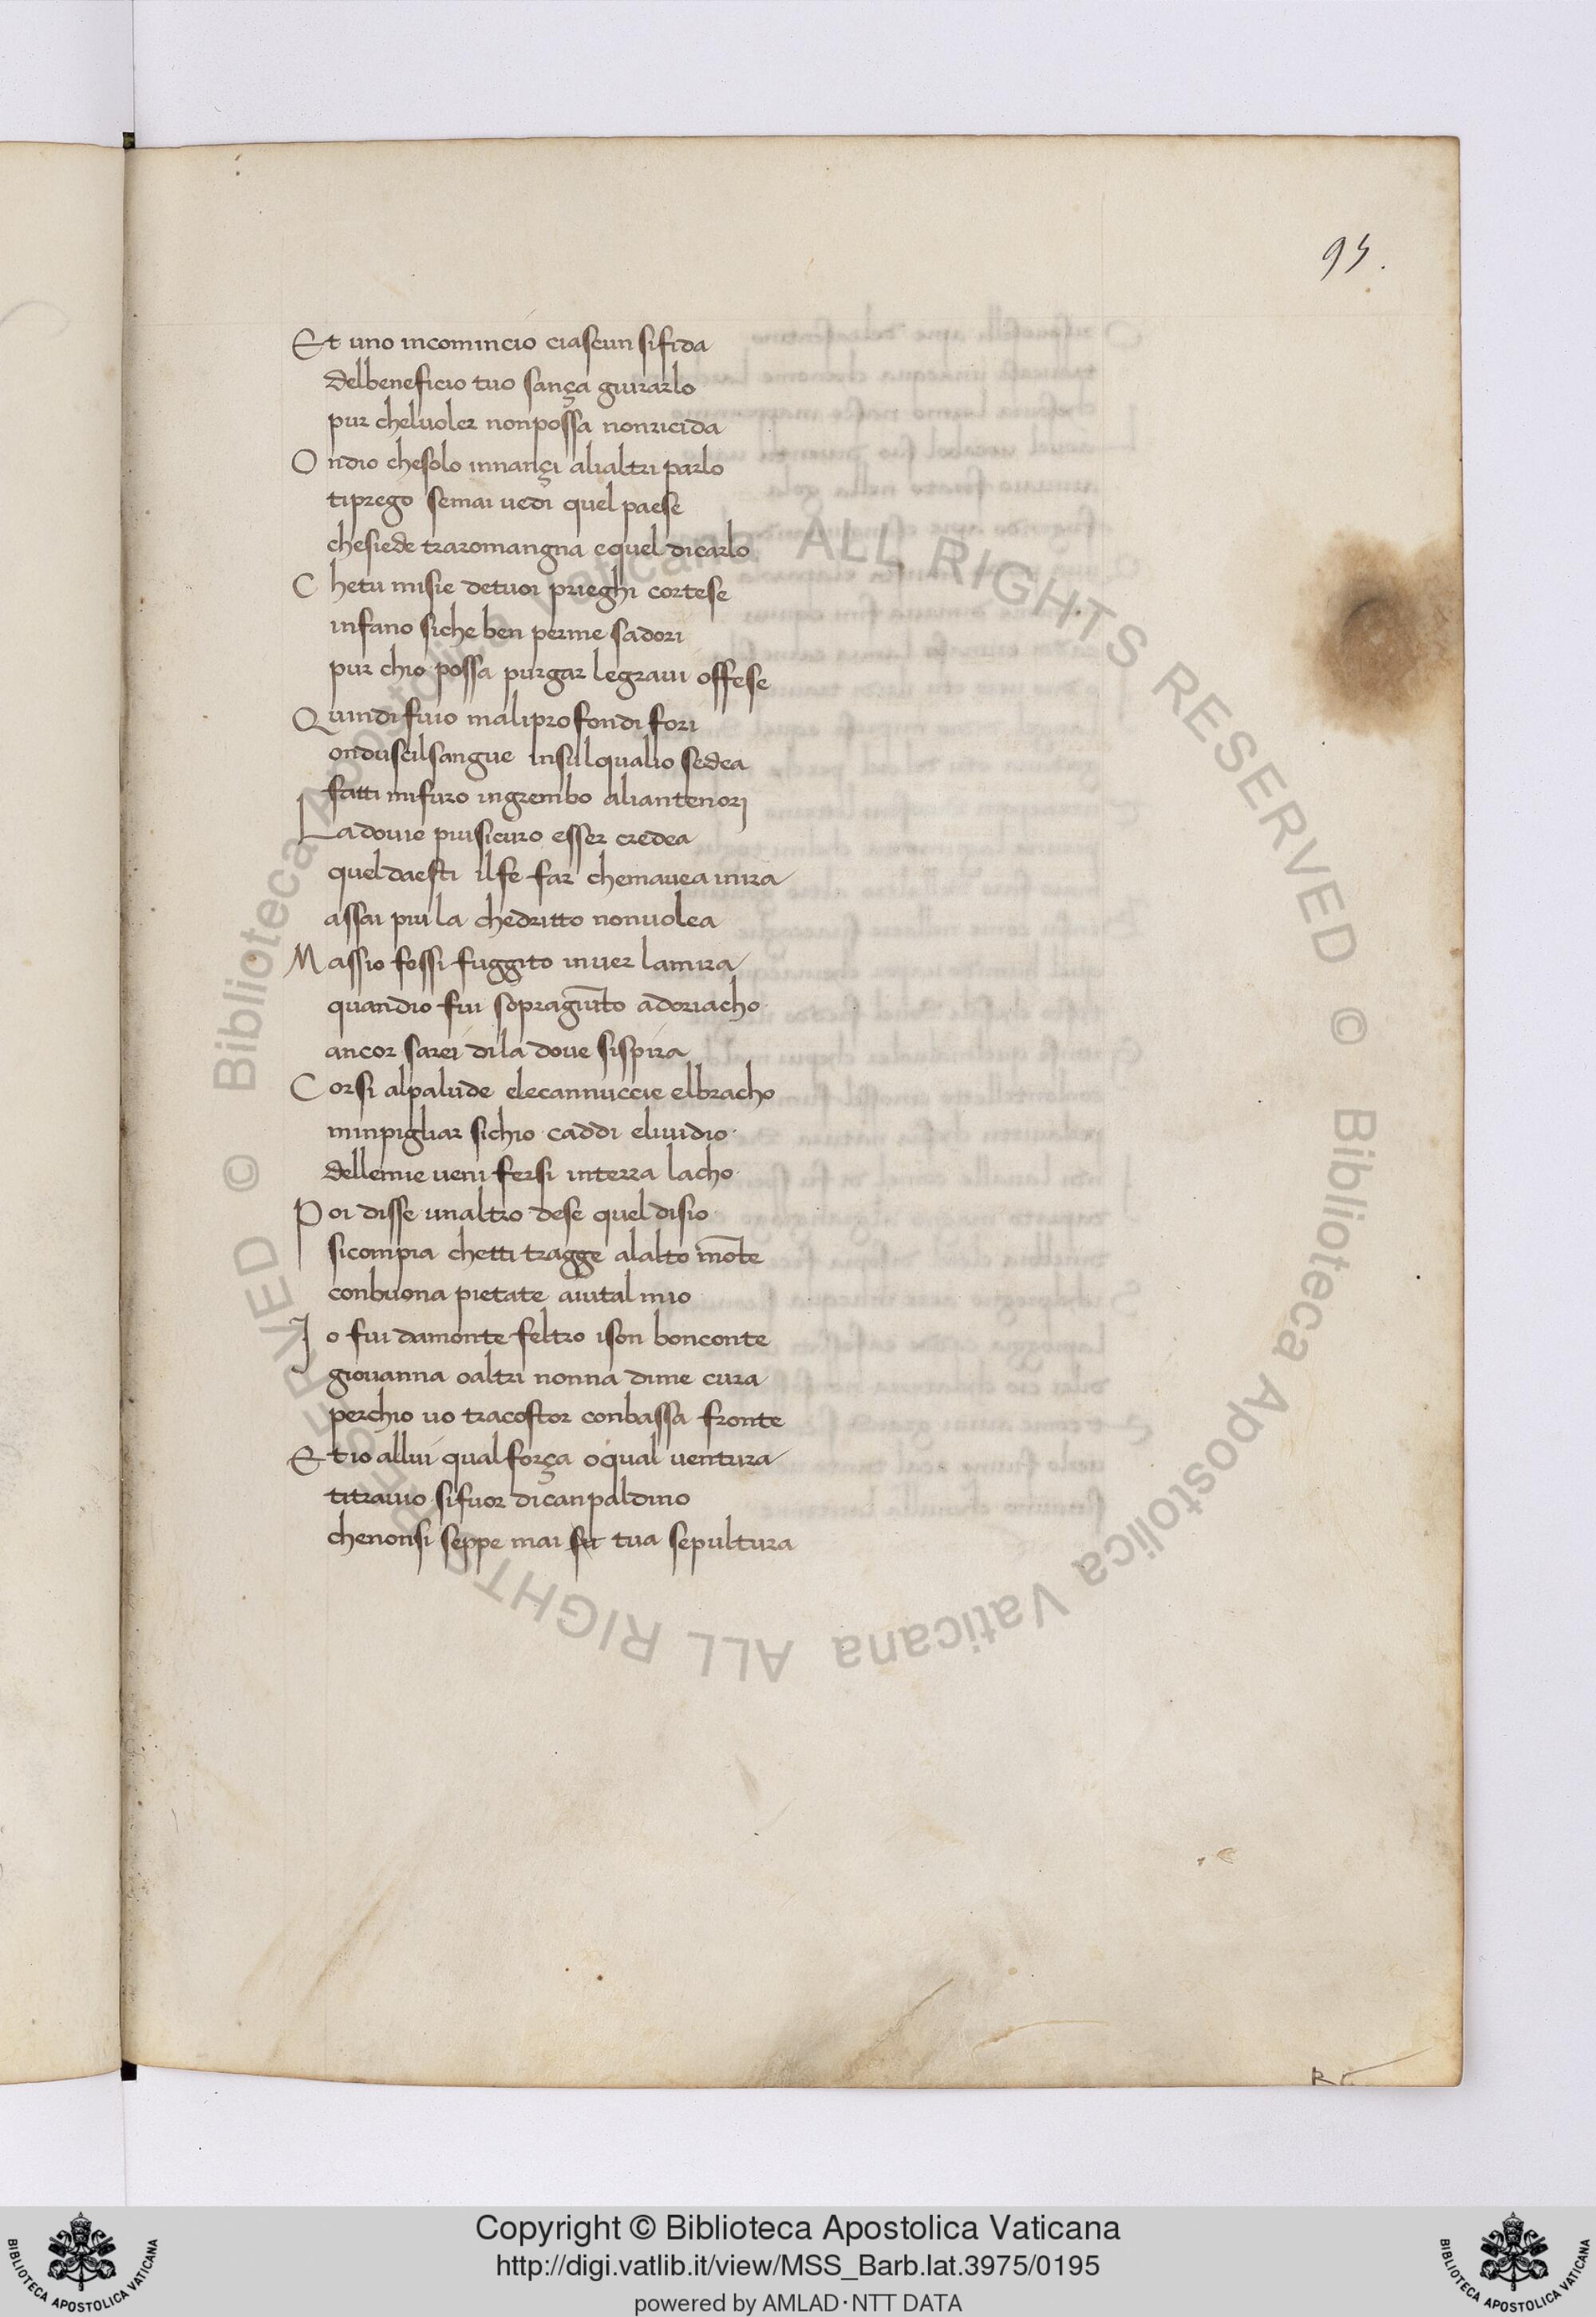 95.
Et uno incomincio ciascun sifida
delbeneficio tuo sança giurarlo
pur cheluoler nonpossa nonricida
O ndio chesolo innançi alialtri parlo
tiprego semai uedi quel paese
chesiede traromangna equel dicarlo
C hetu misie detuoi prieghi cortese
infano siche ben perme sadori
pur chio possa purgar legraui offese
Q uindi fuio maliprofondi fori
onduscilsangue insulqualio sedea
fatti mifuro ingrembo aliantenori
L adouio piusicuro esser credea
quel daesti ilfe far chemauea inira
assai piu la chedritto nonuolea
M assio fossi fuggito inuer lamira
quandio fui sopragiūto adoriacho
ancor sarei dila doue sispira
C orsi alpalude elecannuccie elbracho
minpigliar sichio caddi eliuidio
dellemie ueni fersi interra lacho
P oi disse unaltro dese quel disio
sicompia chetti tragge alalto mōte
conbuona pietate aiutal mio
I o fui damonte feltro ison bonconte
giouanna oaltri nonna dime cura
perchio uo tracostor conbassa fronte
E t io allui qual força oqual uentura
titrauio sifuor dicanpaldino
chenonsi seppe mai tua sepultura
© Biblioteca Apostolica Vaticana ALL RIGHTS RESERVED © Biblioteca Apostolica Vaticana ALL RIGHTS RESERVED
Copyright © Biblioteca Apostolica Vaticana
http://digi.vatlib.it/view/MSS_Barb.lat.3975/0195
powered by AMLAD·NTT DATA
BIBLIOTECA APOSTOLICA VATICANA
BIBLIOTECA APOSTOLICA VATICANA